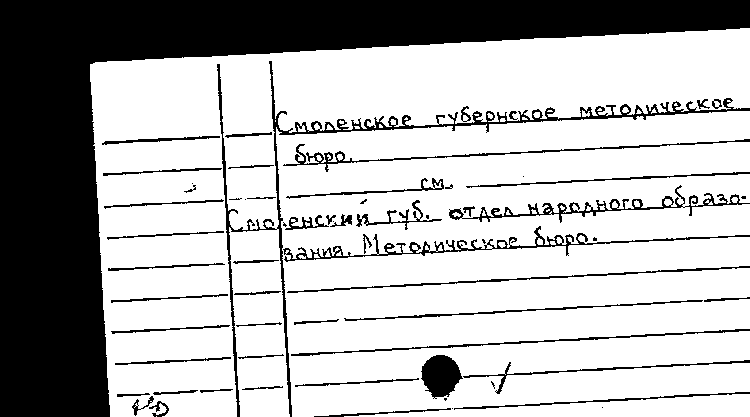 Смоленское губернское методическое
бюро.
см.
Смоленский губ. отдел народного образо-
вания. Методическое бюро.